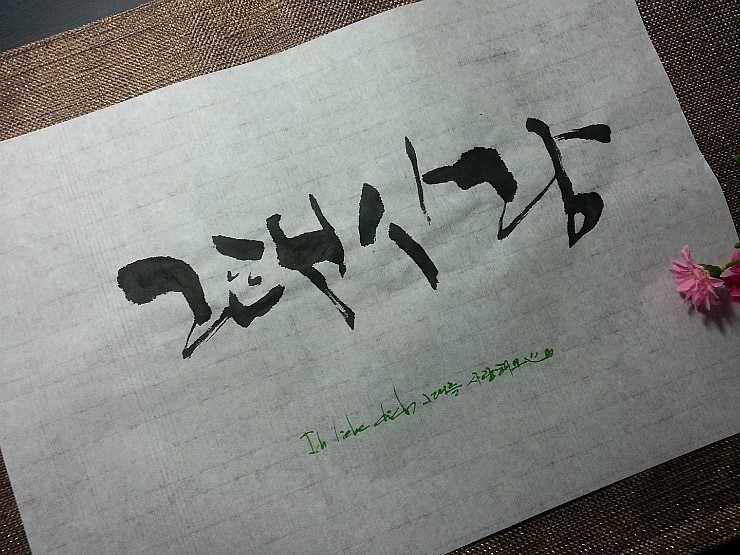 그대사랑
Ich liebe dich, 그대를 사랑해요